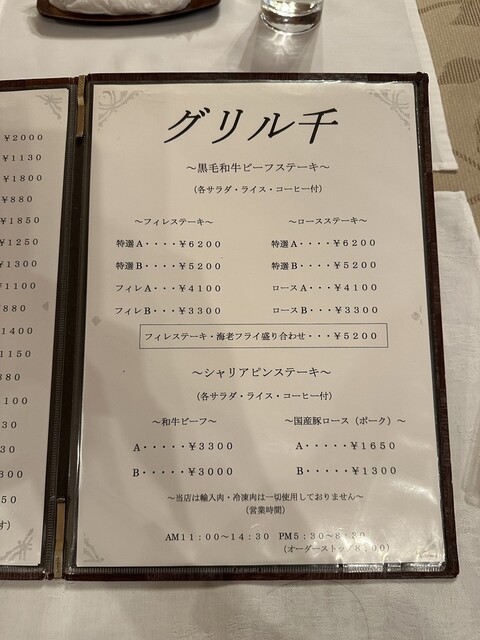 ¥2000
¥1130
¥1800
¥880
¥1850
¥1250
¥1300
¥1100
880
1400
1150
880
100
30
30
50
す)
グリル千
～黒毛和牛ビーフステーキ～
(各サラダ・ライス・コーヒー付)
～フィレステーキ～
特選A・・・・¥6200
特選B・・・・¥5200
フィレA・・・¥4100
フィレB・・・¥3300
～ロースステーキ～
特選A・・・・¥6200
特選B・・・・¥5200
ロースA・・・¥4100
ロースB・・・¥3300
フィレステーキ・海老フライ盛り合わせ・・・¥5200
～シャリアピンステーキ～
(各サラダ・ライス・コーヒー付)
～和牛ビーフ～
A・・・・・¥3300
B・・・・・¥3000
～国産豚ロース（ポーク）～
A・・・・・¥1650
B・・・・・¥1300
～当店は輸入肉・冷凍肉は一切使用しておりません～
(営業時間)
AM11：00～14：30 PM5：30～8：30
(オーダーストップ8：00)